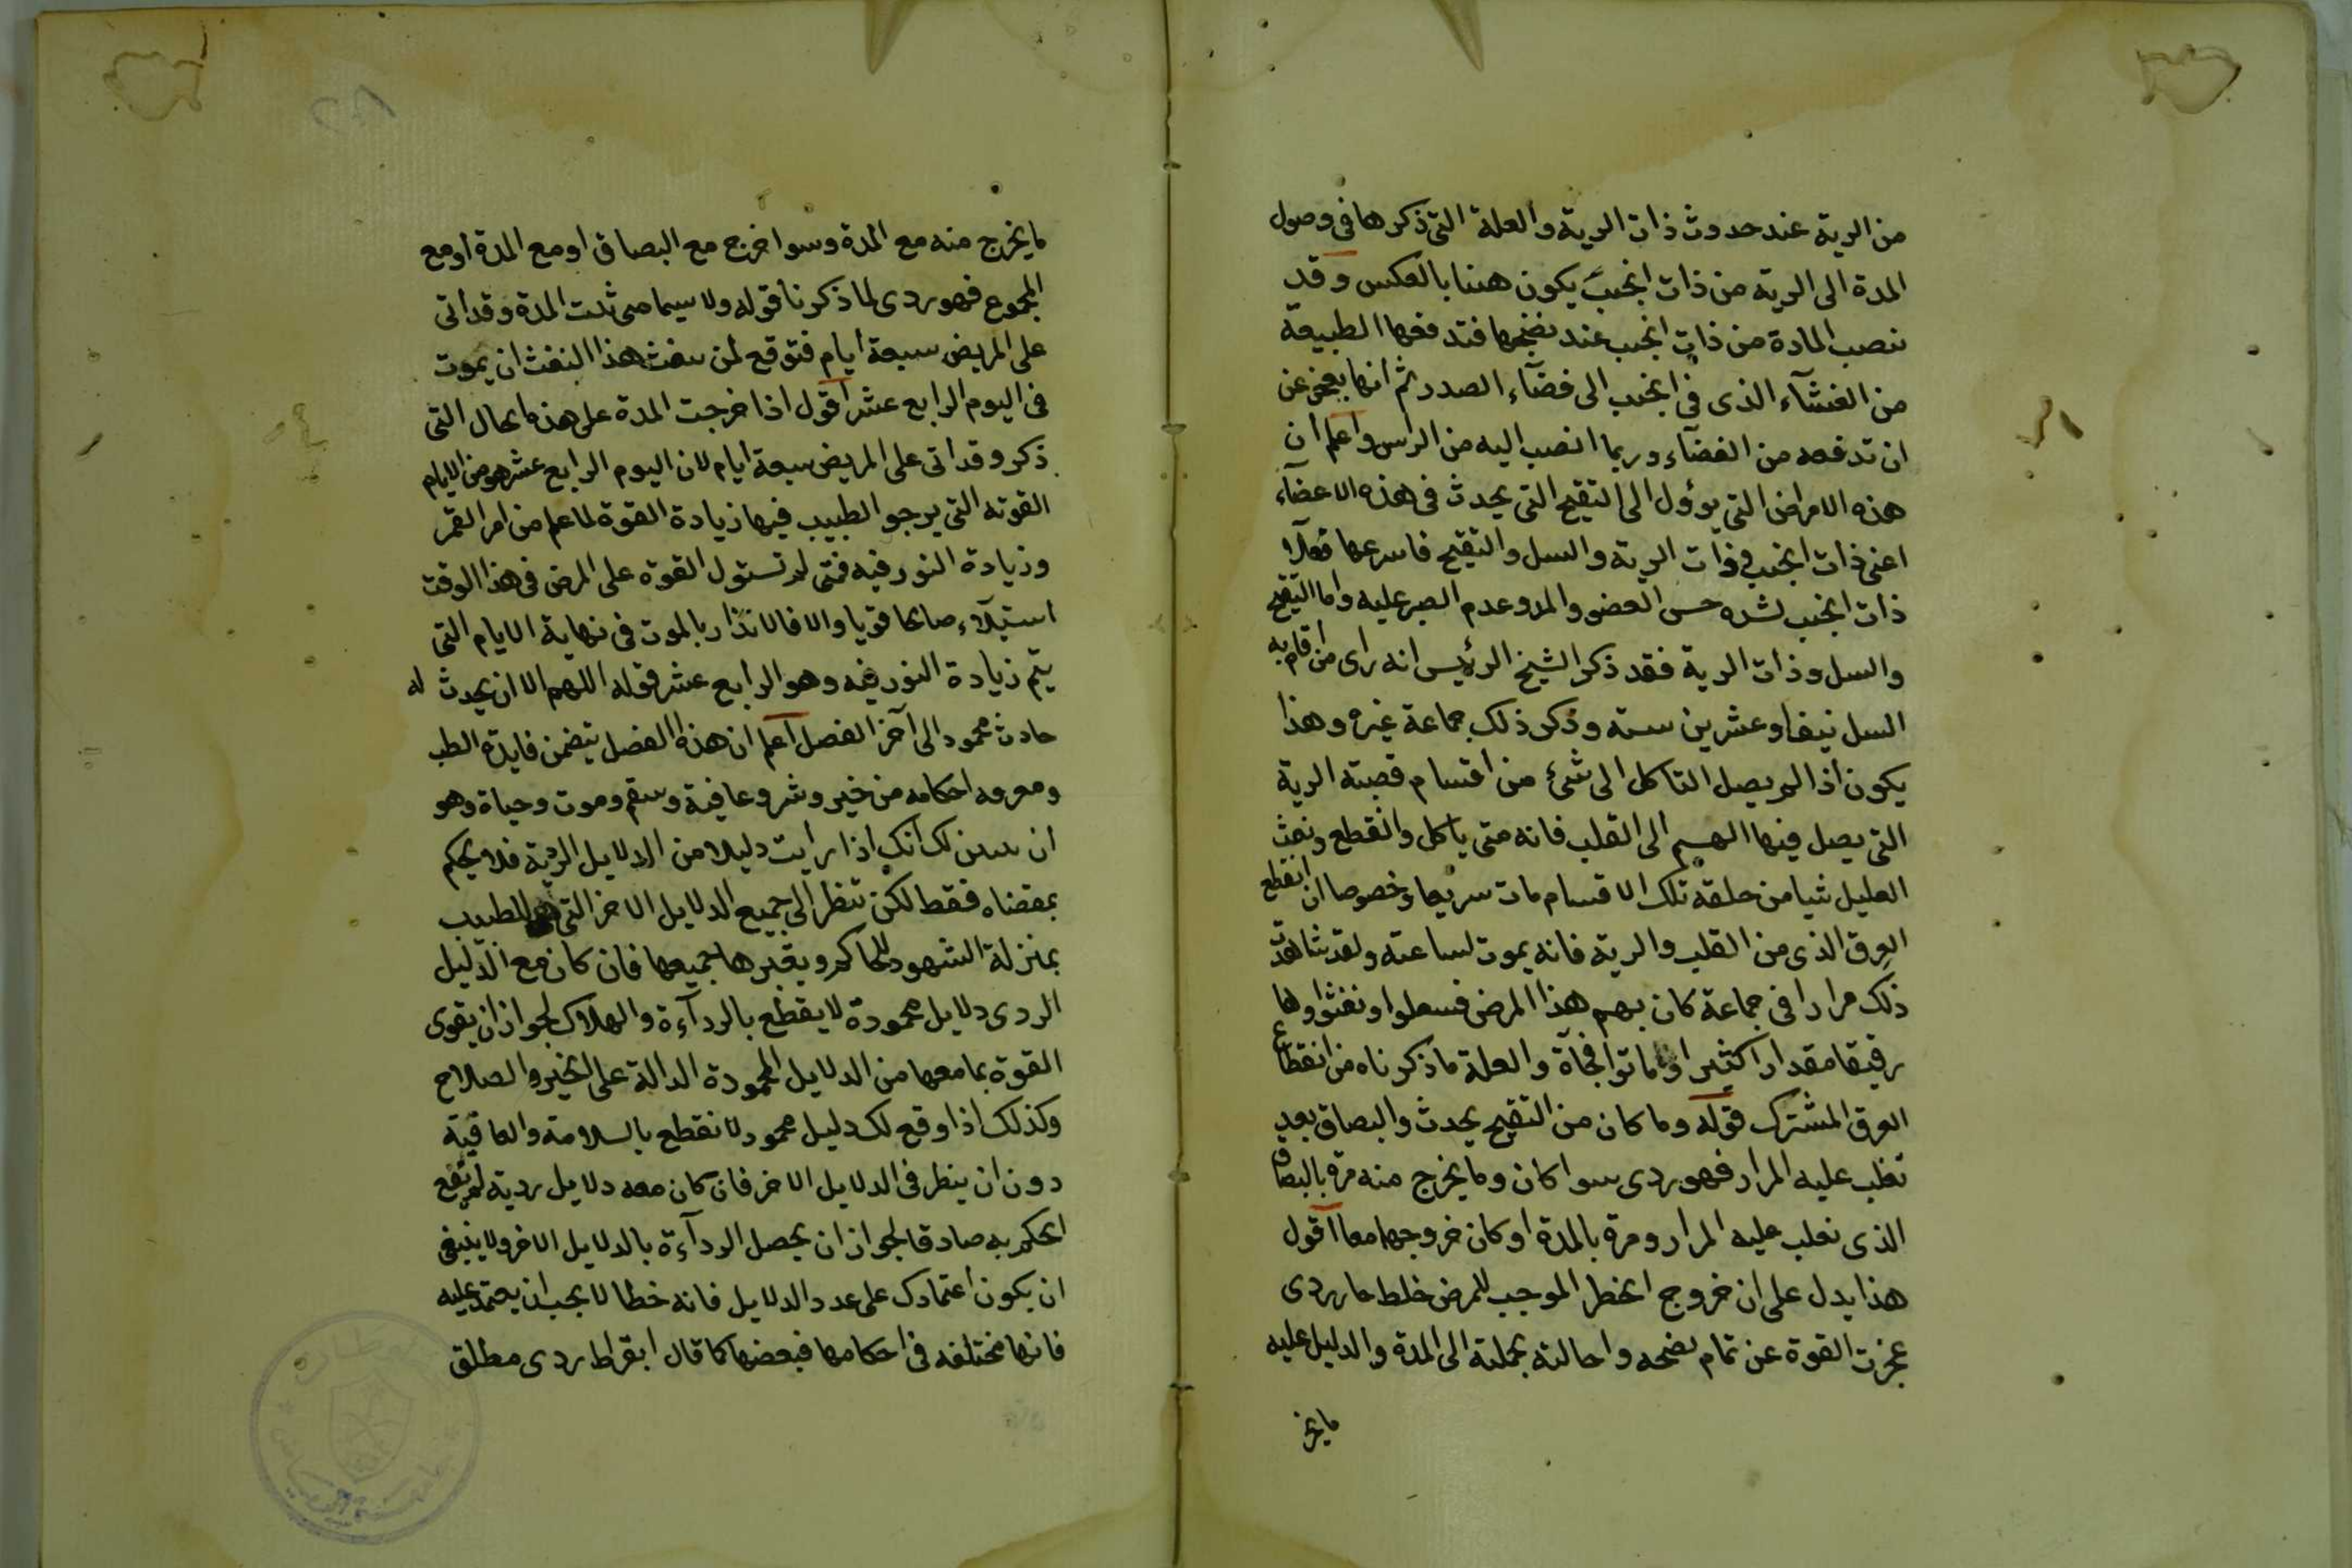 من الرية عند حدوث ذات الرية والعلة التى ذكرها فى وصول
المدة الى الرية من ذات الجنب يكون هنا بالعكس وقد
تنصب المادة من ذات الجنب عند نضجها فتدفعها الطبيعة
من الغشآء الذى فى الجنب الى فضآء الصدر ثم انها يعجز عن
ان تدفعه من الفضآء وربما انصب اليه من الراس واعلم ان
هذه الامراض التى يؤول الى التقيح التى يحدث فى هذه الاعضآء
اعنى ذات الجنب وذات الرية والسل والتقيح فاسرعها قتلا
ذات الجنب لشده حس العضو وعدم الصبر عليه واما التقيح
والسل وذات الرية فقد ذكر الشيخ الرئيس انه راى من اقام به
السل نيفا وعشرين سنة وذكر ذلك جماعة غيره وهذا
يكون اذا لم يصل التاكل الى شئ من اقسام قصبة الرية
التى يصل فيها النسيم الى القلب فانه متى ياكل وانقطع ونفث
العليل شيا من حلقة تلك الاقسام مات سريعا وخصوصا ان انقطع
العرق الذى من القلب والرية فانه يموت لساعته ولقد شاهدت
ذلك مرارا فى جماعة كان بهم هذا المرض فسعلوا ونفثوا دما
رقيقا مقدارا كثيرا وماتوا فجآة والعلة ما ذكرناه من انقطاع
العرق المشترك قوله وما كان من التقيح يحدث والبصاق بعد
تغلب عليه المرار فهو ردى سوا كان وما يخرج منه مرة بالبصاق
الذى تغلب عليه المرار ومرة بالمدة او كان خروجهما معا اقول
هذا يدل على ان خروج الخلط الموجب للمرض خلط حار ردى
عجزت القوة عن تمام نضجه واحالته بجملته الى المدة والدليل عليه
ما يخر
ما يخرج منه مع المدة وسوا خرج مع البصاق او مع المدة او مع
المجموع فهو ردى لما ذكرنا قوله ولا سيما متى بدت المدة وقد اتى
على المريض سبعة ايام فتوقع لمن ينفث هذا النفث ان يموت
فى اليوم الرابع عشر اقول اذا خرجت المدة على هذه الحال التى
ذكر وقد اتى على المريض سبعة ايام لان اليوم الرابع عشر هو من الايام
القوته التى يرجو الطبيب فيها زيادة القوة لما علم من امر القمر
وزيادة النور فيه فمتى لم تستول القوة على المرض فى هذا الوقت
استيلآء صالحا قويا والا فالانذار بالموت فى نهاية الايام التى
يتم زيادة النور فيه وهو الرابع عشر قوله اللهم الا ان يحدث له
حادث محمود الى آخر الفصل اعلم ان هذه الفصل يتضمن فايدة الطب
ومعرفه احكامه من خير وشر وعافية وسقم وموت وحياة وهو
ان يبين لك انك اذا رايت دليلا من الدلايل الردية فلا يحكم
بمقتضاه فقط لكن تنظر الى جميع الدلايل الاخر التى للطبيب
بمنزلة الشهود للحاكم ويعتبرها جميعها فان كان مع الدليل
الردى دلايل محمودة لا يقطع بالردآءة والهلاك لجواز ان يقوى
القوة بما معها من الدلايل المحمودة الدالة على الخير والصلاح
وكذلك اذا وقع لك دليل محمود لا نقطع بالسلامة والعافية
دون ان ينظر فى الدلايل الاخر فان كان معه دلايل ردية لم يقع
الحكم به صادقا لجواز ان يحصل الردآءة بالدلايل الاخر ولا ينبغى
ان يكون اعتمادك على عدد الدلايل فانه خطا لا يجب ان يعتمد عليه
فانها مختلفه فى احكامها فبعضها كما قال ابقراط ردى مطلق